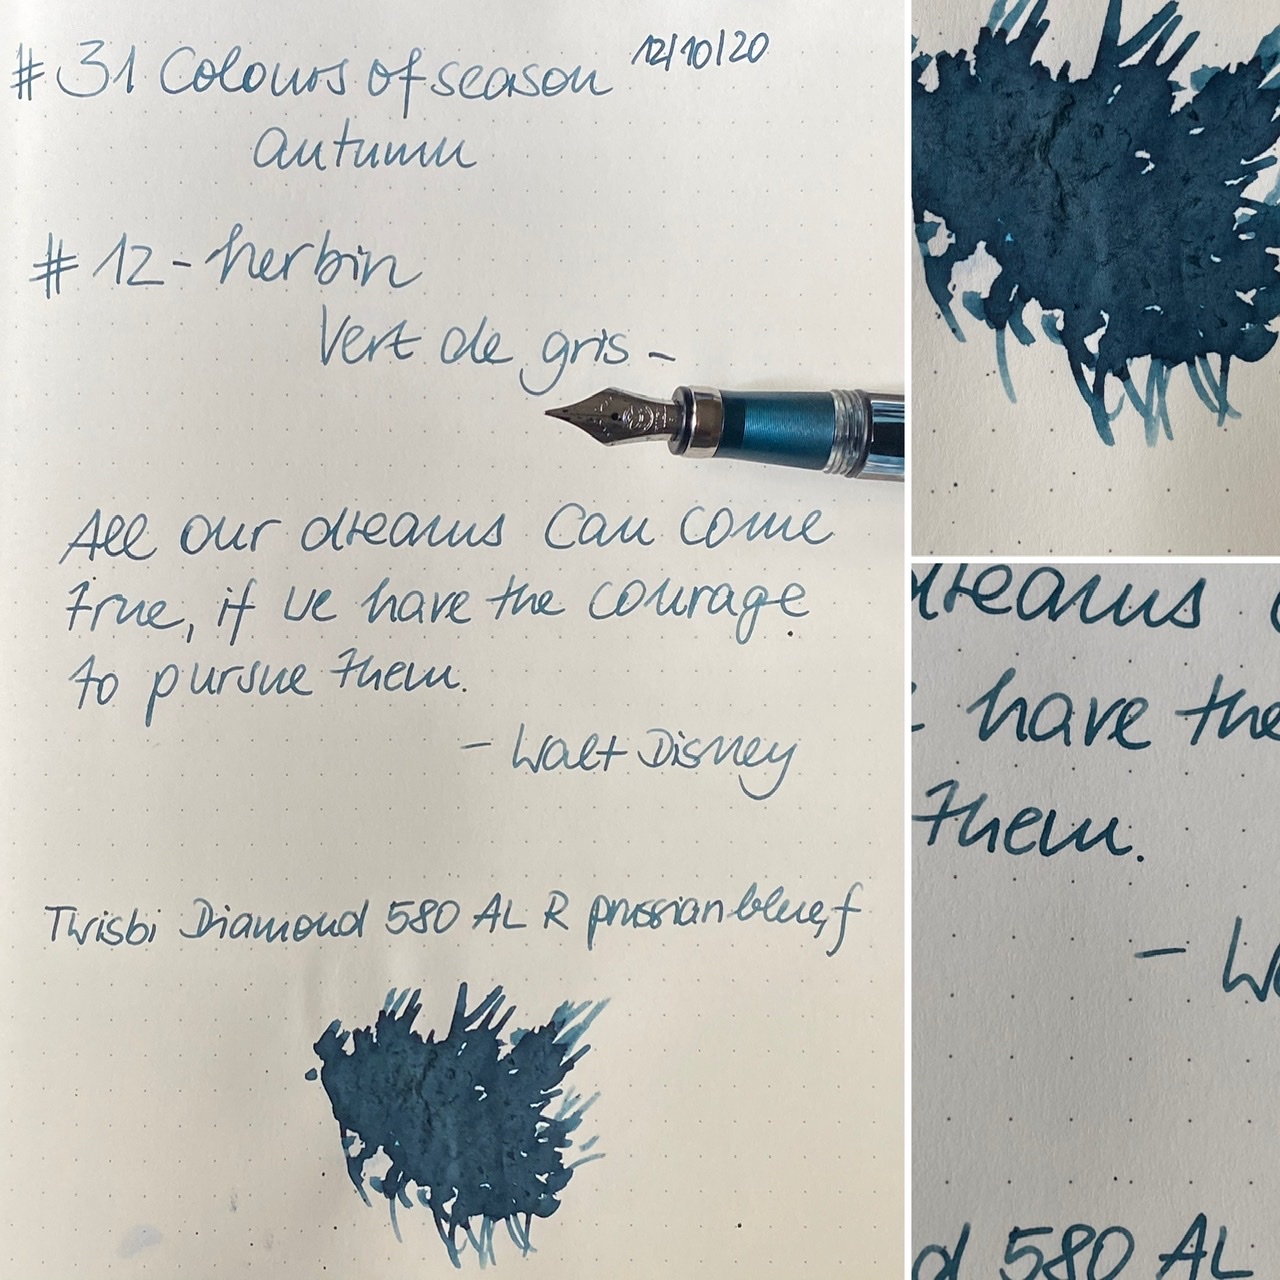 # 31 Colours of season 12/10/20
autumn
# 12 - herbin
Vert de gris -
All our dreams can come
true, if we have the courage
to pursue them.
- Walt Disney
Twisbi Diamond 580 AL R prussian blue, f
dreams
have the
them.
- Wa
d 580 AL